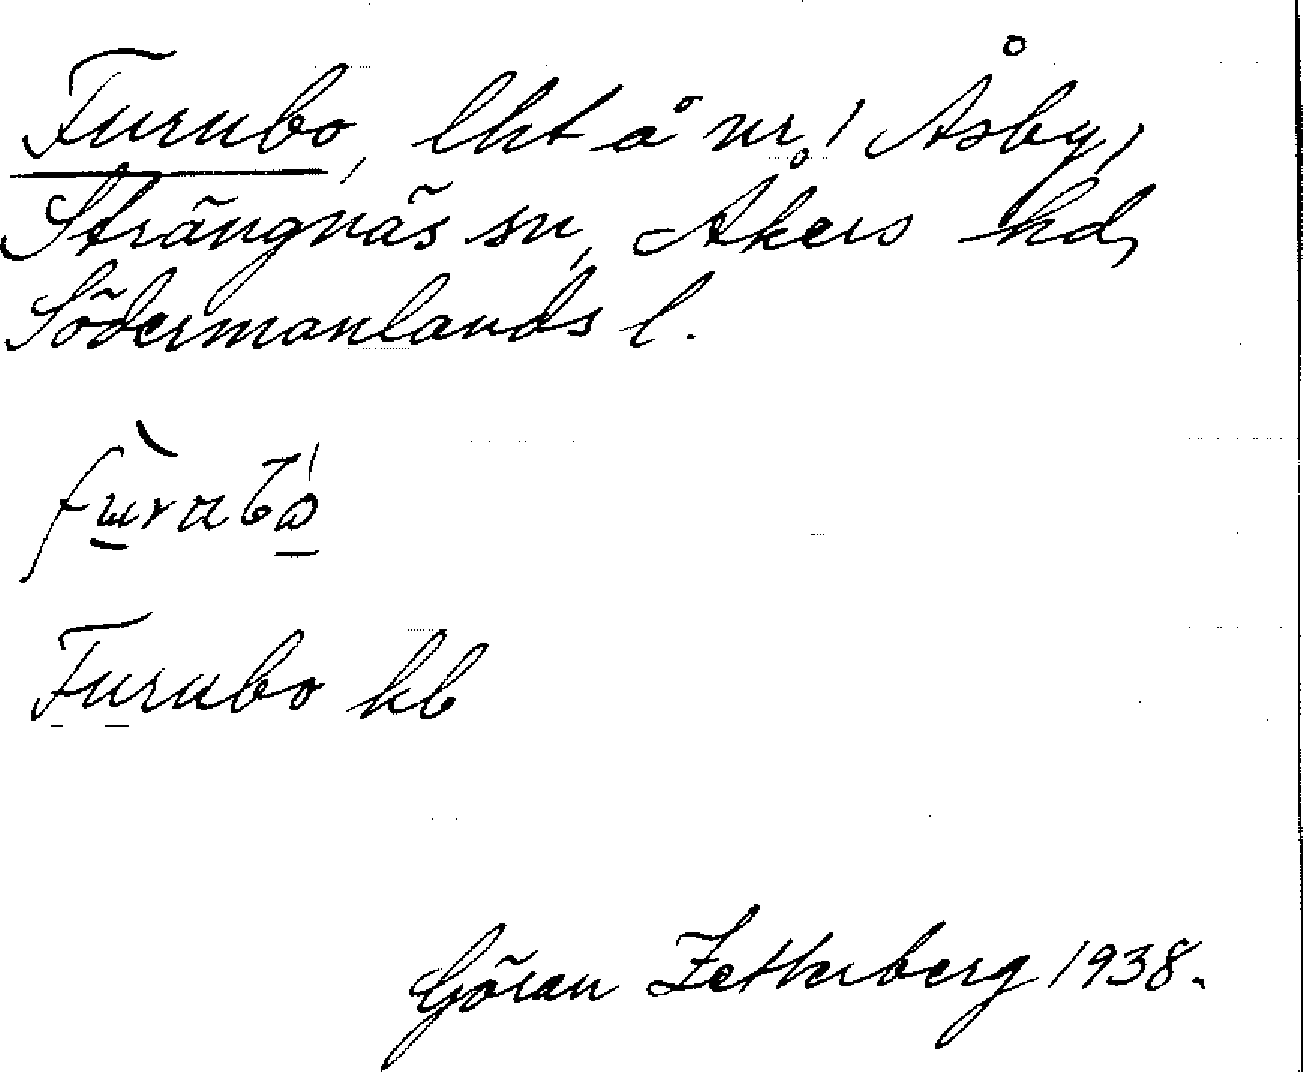 Furubo, lht å nr 1 Åsby,
Strängnäs sn, Åkers hd,
Södermanlands l.
Furubo kb
Göran Zetterberg 1938.